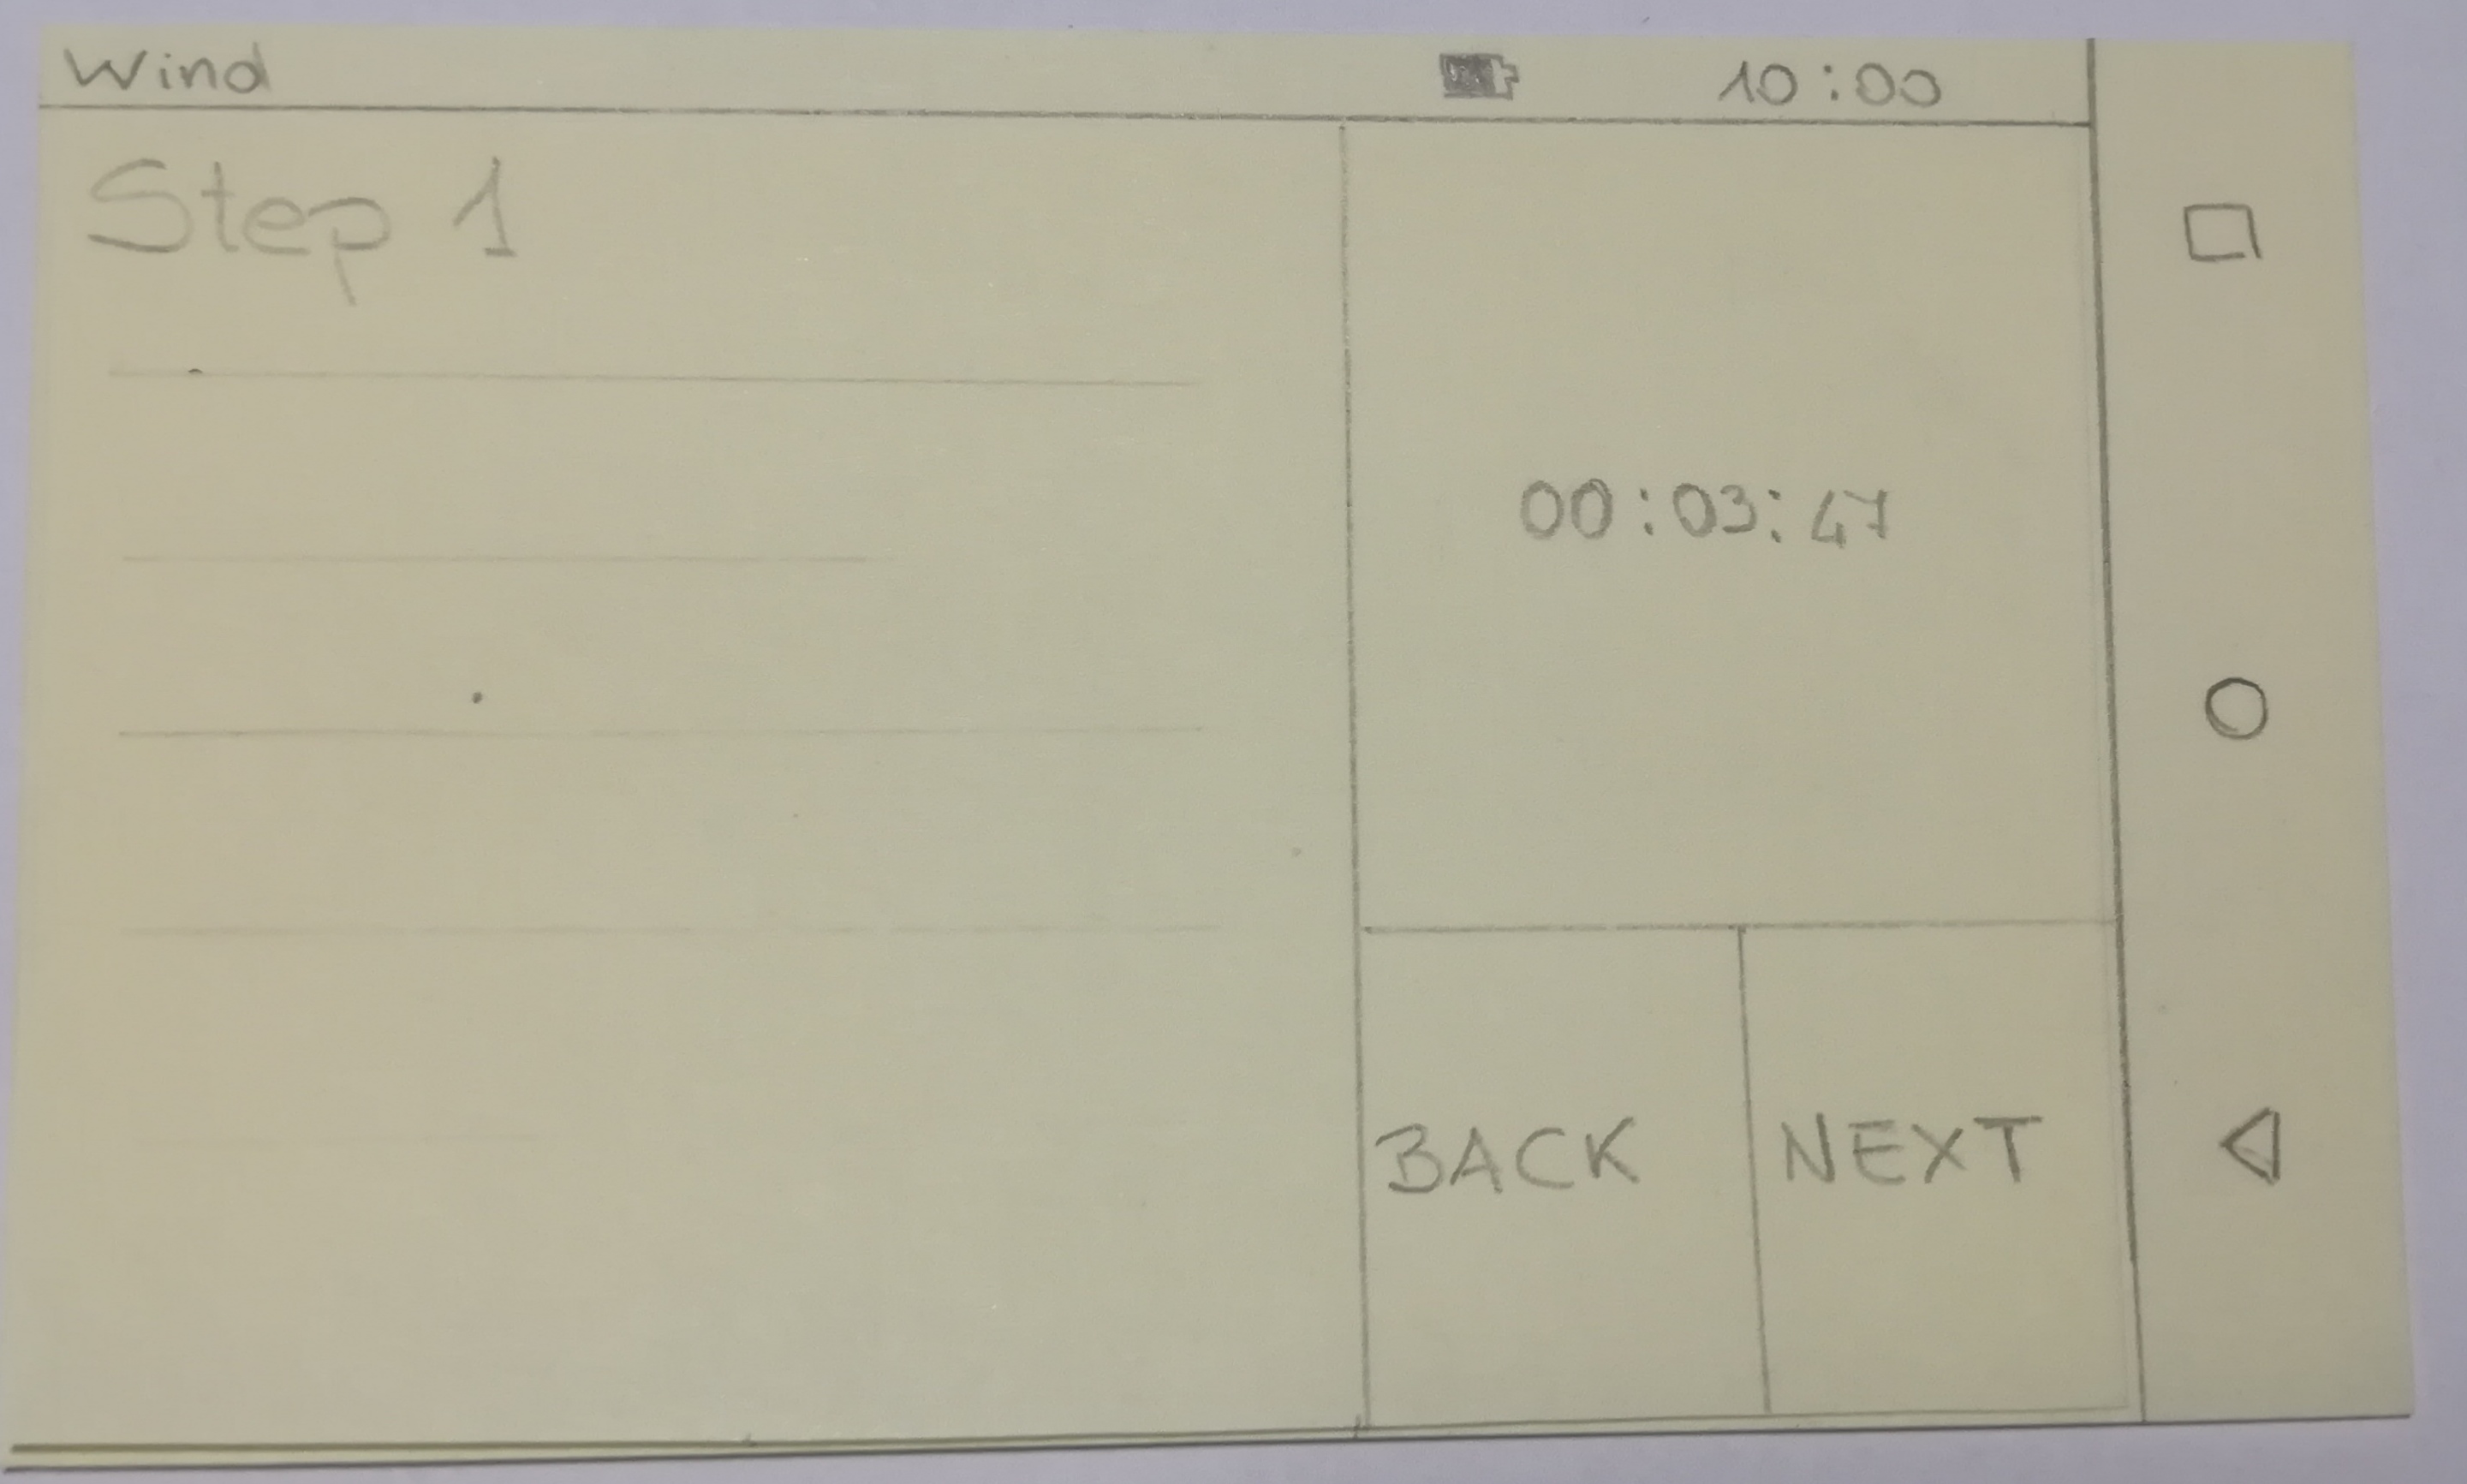 Wind 10:00
Step 1
00:03:47
BACK NEXT